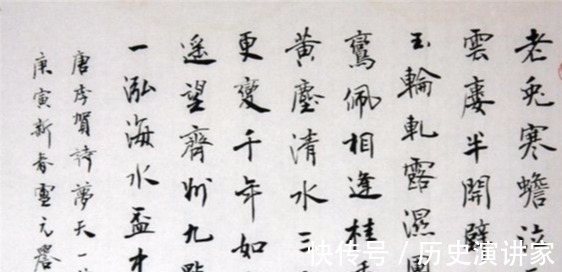 老兔寒蟾泣
雲廔半開壁
玉輪軋露濕團
鸞佩相逢桂
黃塵清水三
更變千年如
遥望齊州九點
一泓海水盃中
唐李賀詩夢天一
庚寅新春
快传号 / 历史演讲家